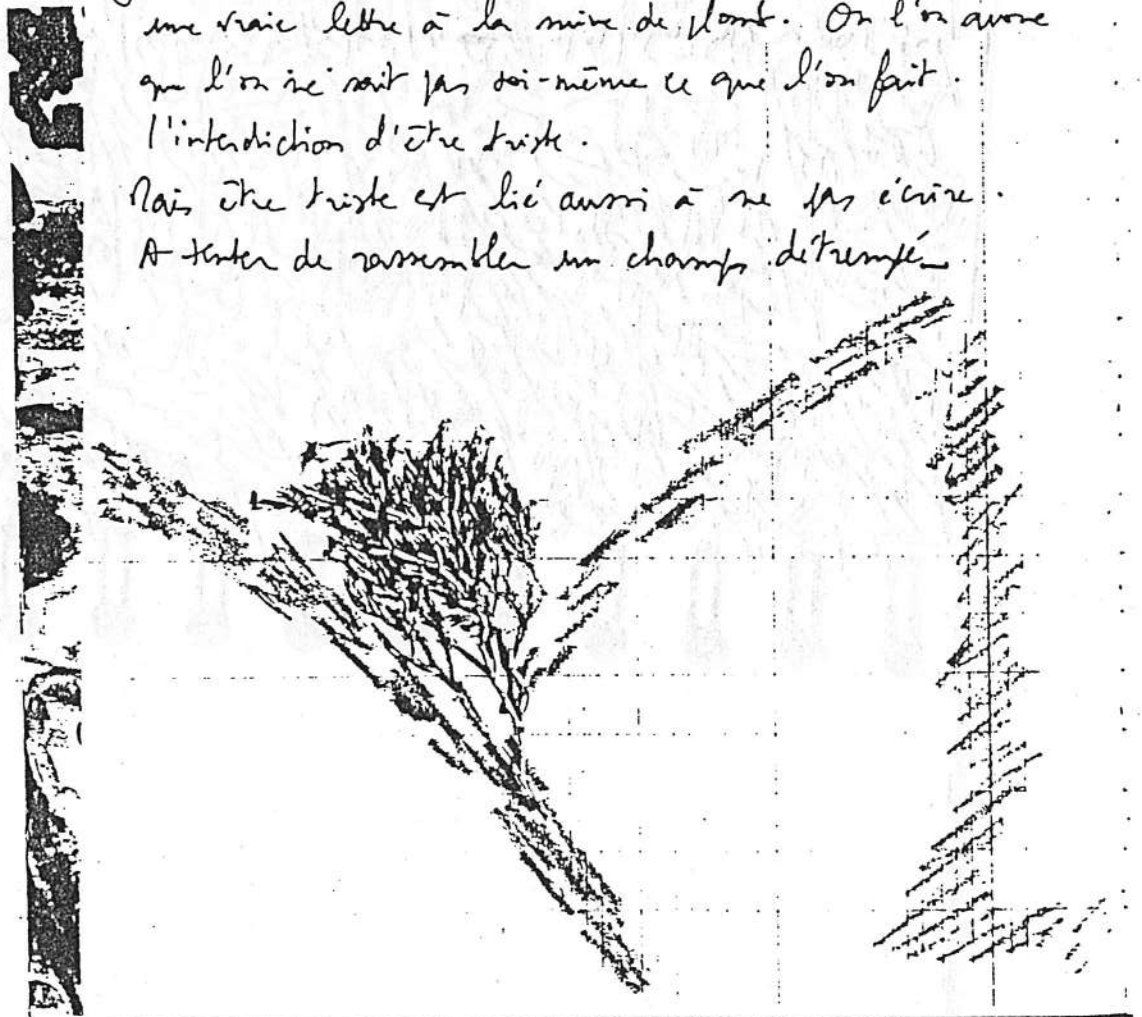 une vraie lettre à la mine de plomb. Où l'on avoue
que l'on ne sait pas soi-même ce que l'on fait.
l'interdiction d'être triste.
Mais être triste est lié aussi à ne pas écrire.
A tenter de rassembler un champs détrempé